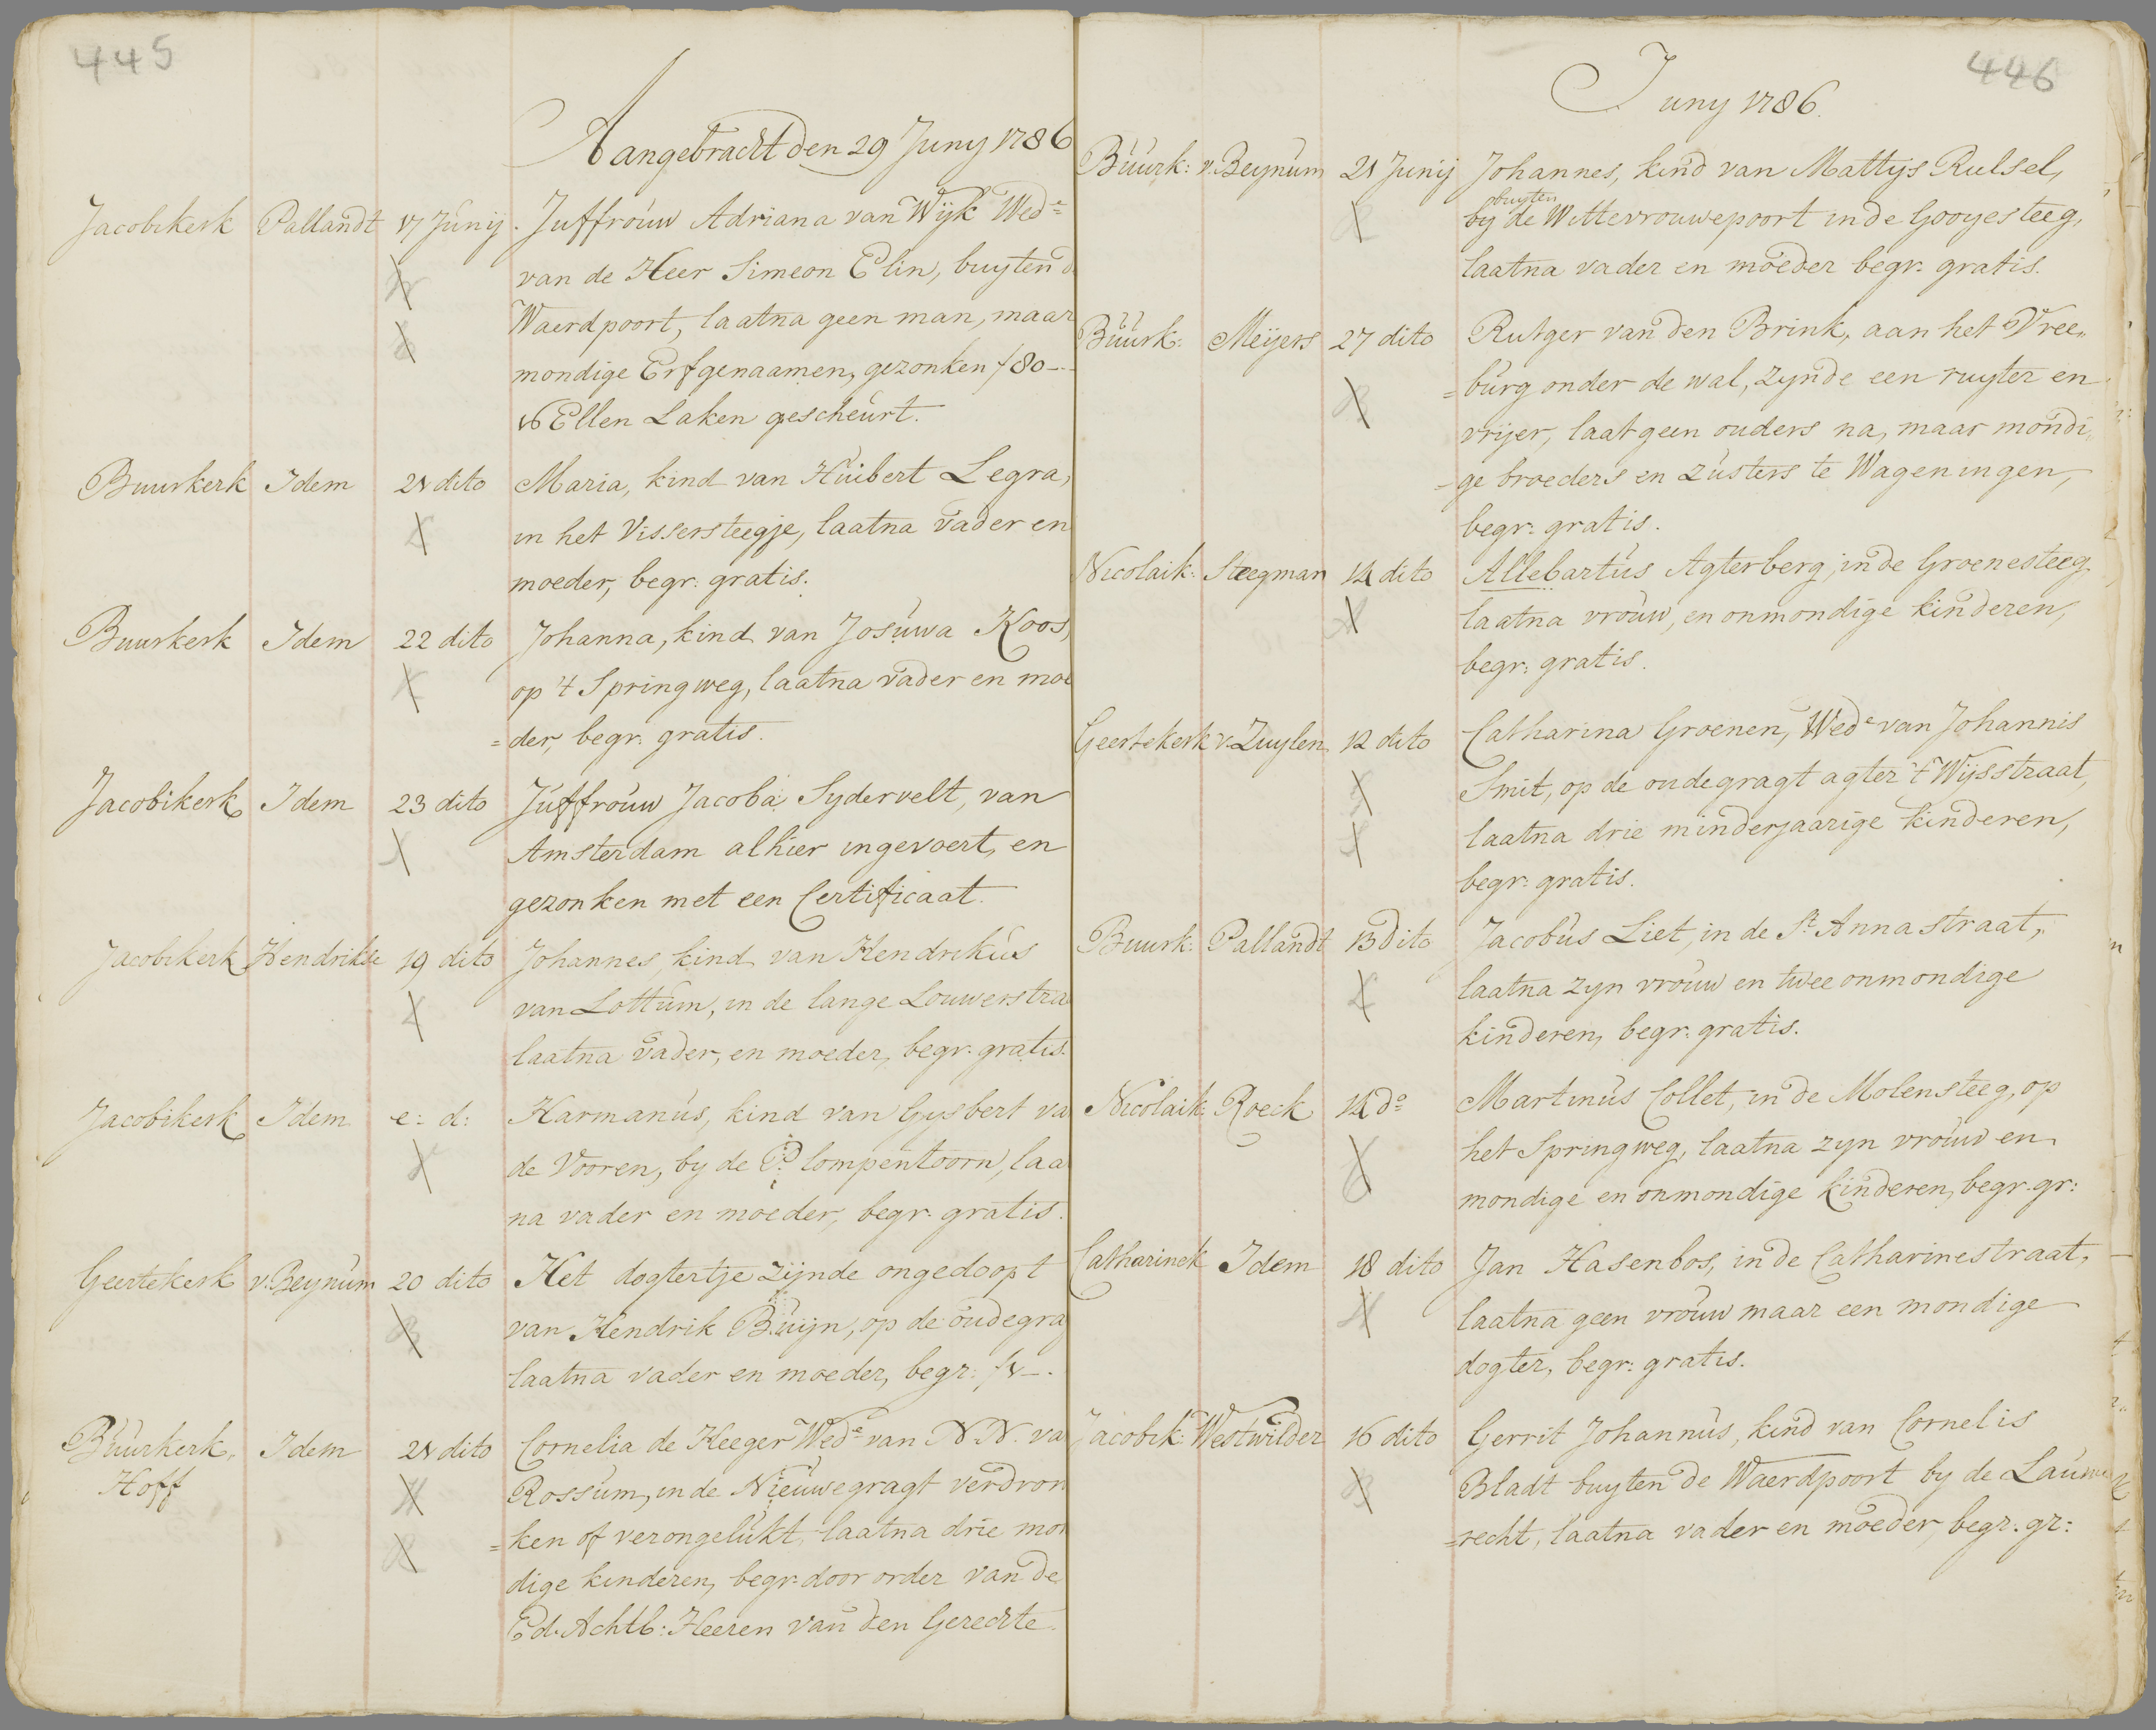 445
Aangebracht den 29 Juny 1786
Jacobikerk Pallandt 17 Junij Juffrouw Adriana van Wijk Wed.e
van de Heer Simeon Elin, buyten d
Waerdpoort, laatna geen man, maar
mondige Erfgenaamen, gezonken f 80-.-
16 Ellen Laken gescheurt.
Buurkerk Idem 21 dito Maria, kind van Huibert Legra,
in het Vissersteegje, laatna vader en
moeder, begr: gratis.
Buurkerk Idem 22 dito Johanna, kind van Josuwa Koos,
op 't Springweg, laatna vader en moe
=der, begr: gratis.
Jacobikerk Idem 23 dito Juffrouw Jacoba Sydervelt, van
Amsterdam alhier ingevoert, en
gezonken met een Certificaat.
Jacobikerk Hendrikse 19 dito Johannes, kind van Hendrikus
van Lottum, in de lange Louwerstra
laatna vader, en moeder, begr: gratis.
Jacobikerk Idem e: d: Harmanus, kind van Gysbert va
de Vooren, by de Plompentoorn, laa
na vader en moeder, begr: gratis.
Geertekerk v: Beynum 20 dito Het dogtertje zijnde ongedoopt
van Hendrik Buijn, op de oudegra
laatna vader en moeder, begr: f 1-.
Buurkerk, Idem 21 dito Cornelia de Heeger Wed.e van N.N. va
Hoff Rossum, in de Nieuwegragt verdron
=ken of verongelukt, laatna drie mon
dige kinderen, begr: door order van de
Ed: Achtb: Heeren van den Gerechte.
446
Juny 1786.
Buurk: v. Beynum 21 Junij Johannes, kind van Mattijs Rulsel,
buyten
by de Wittevrouwepoort in de Gooyesteeg,
laatna vader en moeder begr: gratis.
Buurk: Meijers 27 dito Rutger van den Brink, aan het Vree„
=burg onder de wal, zynde een ruyter en
vrijer, laat geen ouders na, maar mondi„
=ge broeders en zusters te Wageningen,
begr: gratis.
Nicolaik: Steegman 14 dito Allebartus Agterberg, in de Groenesteeg
laatna vrouw, en onmondige kinderen,
begr: gratis.
Geertekerk v. Zuylen 12 dito Catharina Groenen, Wed.e van Johannis
Smit, op de oudegragt agter 't Wijsstraat,
laatna drie minderjaarige kinderen,
begr: gratis.
Buurk: Pallandt 13 dito Jacobus Liet, in de St. Annastraat,
laatna zyn vrouw en twee onmondige
kinderen, begr: gratis.
Nicolaik: Roeck 14 do Martinus Collet, in de Molensteeg, op
het Springweg, laatna zyn vrouw en
mondige en onmondige kinderen, begr. gr:
Catharinek Idem 18 dito Jan Hasenbos, in de Catharinestraat,
laatna geen vrouw maar een mondige
dogter, begr: gratis.
Jacobik: Westwilder 16 dito Gerrit Johannus, kind van Cornelis
Bladt buyten de Waerdpoort by de Lauwe
=recht, laatna vader en moeder, begr. gr: